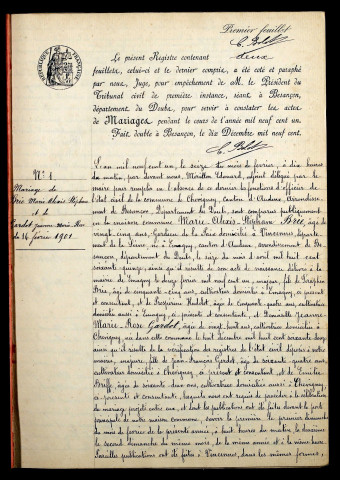 Premier feuillet
Le présent Registre contenant deux
feuillets, celui-ci et le dernier compris, a été coté et paraphé
par nous, Juge, pour empêchement de M. le Président du
Tribunal civil de première instance, séant à Besançon,
département du Doubs, pour servir à constater les actes
de Mariages pendant le cours de l'année mil neuf cent un.
Fait double à Besançon, le dix Décembre mil neuf cent.
RÉPUBLIQUE FRANÇAISE
N° 1
Mariage de
Brié Marie Alexis Stéphane
et de
Gardot Jeanne Marie Rose
du 16 février 1901
L'an mil neuf cent un, le seize du mois de février, à dix heures
du matin, par devant nous, Mouillon Edouard, adjoint délégué par le
maire pour remplir en l'absence de ce dernier les fonctions d'officier de
l'état civil de la commune de Chevigney, canton d'Audeux, arrondissement
de Besançon, Département du Doubs, sont comparus publiquement
en la maison commune Marie Alexis Stéphane Brié, âgé de
vingt cinq ans, Gardien de la Paix domicilié à Vincennes, département
de la Seine, né à Emagny, canton d'Audeux, arrondissement de
Besançon, département du Doubs, le seize du mois d'avril mil huit cent
soixante quinze, ainsi qu'il résulte de son acte de naissance délivré à la
mairie de Emagny le douze février mil neuf cent un, majeur, fils de
Brié, âgé de cinquante cinq ans, cultivateur domicilié à Emagny, ci présent
et consentant, et de Hudelot, âgée de cinquante quatre ans, cultivatrice
domiciliée aussi à Emagny, ci présente et consentante, et Demoiselle Jeanne
Marie Rose Gardot, âgée de vingt huit ans, cultivatrice domiciliée à
Chevigney, née dans cette commune le huit décembre mil huit cent soixante douze
ainsi qu'il résulte de la vérification des registres de l'état civil déposés à notre
mairie, majeure, fille de Jean François Gardot, âgé de soixante quatre ans,
cultivateur domicilié à Chevigney, ci présent et consentant, et de
âgée de soixante deux ans, cultivatrice domiciliée aussi à Chevigney,
ci présente et consentante, lesquels nous ont requis de procéder à la célébration
du mariage projeté entre eux, et dont les publications ont été faites devant la porte
principale de notre maison commune, savoir la première, le premier dimanche
du mois de février de la présente année, à huit heures du matin, la deuxième
le second dimanche du même mois, de la même année et à la même heure.
Pareilles publications ont été faites à Vincennes, dans les mêmes formes,